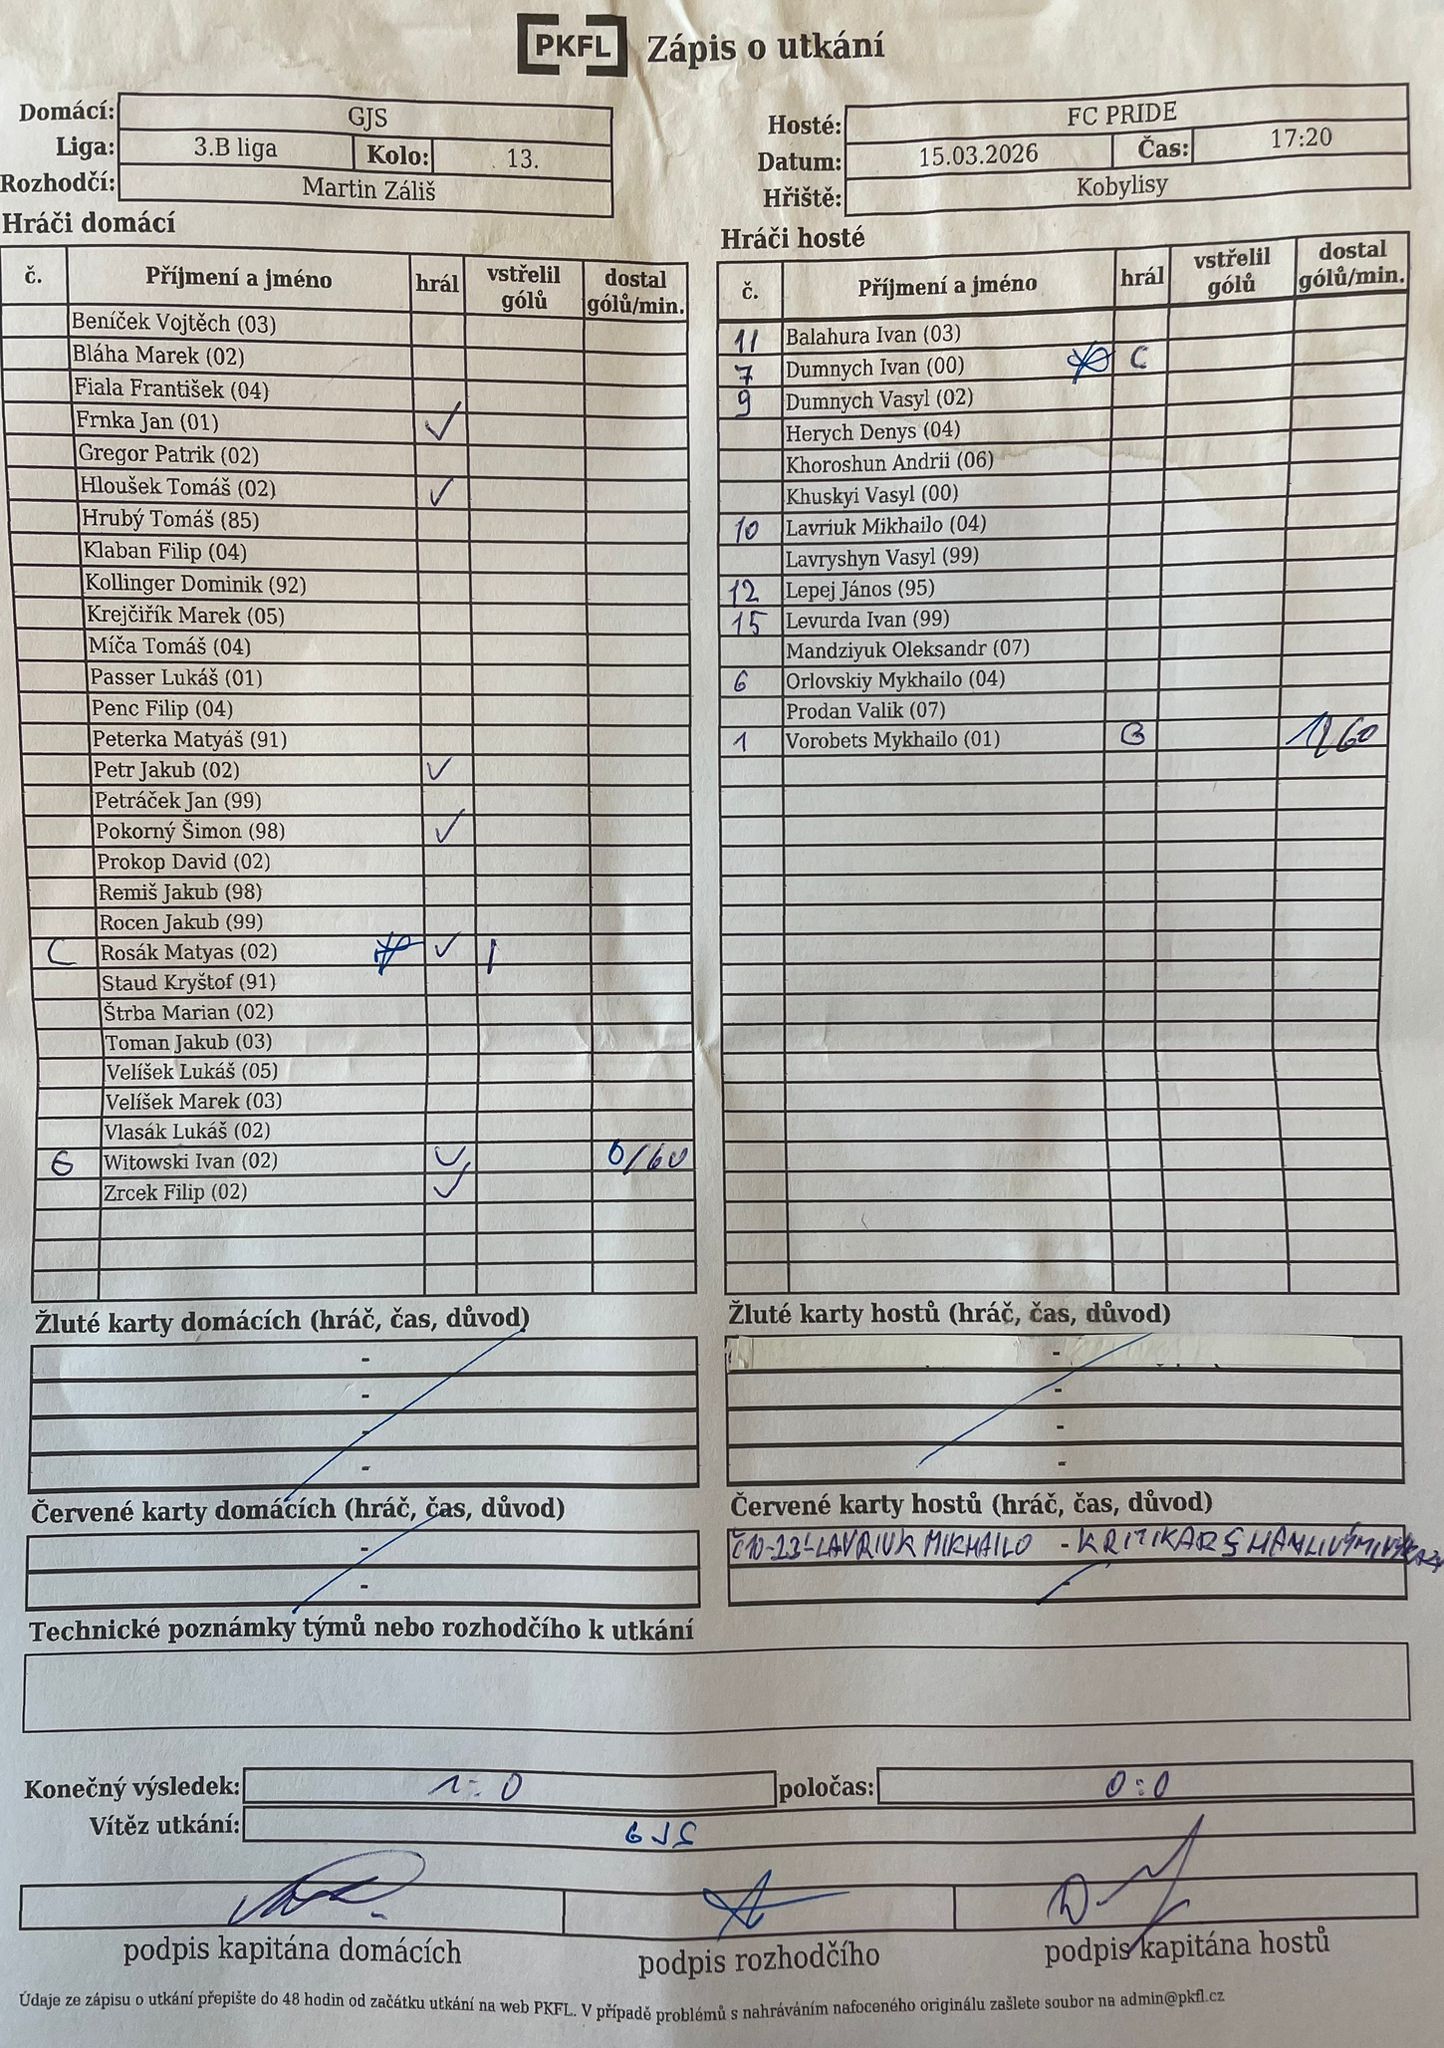 PKFL Zápis o utkání
Domácí: GJS
Liga: 3.B liga Kolo: 13.
Rozhodčí: Martin Záliš
Hosté: FC PRIDE
Datum: 15.03.2026 Čas: 17:20
Hřiště: Kobylisy
Hráči domácí
č. Příjmení a jméno hrál vstřelil gólů dostal gólů/min.
Beníček Vojtěch (03)
Bláha Marek (02)
Fiala František (04)
Frnka Jan (01) ✓
Gregor Patrik (02)
Hloušek Tomáš (02) ✓
Hrubý Tomáš (85)
Klaban Filip (04)
Kollinger Dominik (92)
Krejčiřík Marek (05)
Míča Tomáš (04)
Passer Lukáš (01)
Penc Filip (04)
Peterka Matyáš (91)
Petr Jakub (02) ✓
Petráček Jan (99)
Pokorný Šimon (98) ✓
Prokop David (02)
Remiš Jakub (98)
Rocen Jakub (99)
C Rosák Matyas (02) ✓ 1
Staud Kryštof (91)
Štrba Marian (02)
Toman Jakub (03)
Velíšek Lukáš (05)
Velíšek Marek (03)
Vlasák Lukáš (02)
G Witowski Ivan (02) ✓ 0/60
Zrcek Filip (02) ✓
Hráči hosté
č. Příjmení a jméno hrál vstřelil gólů dostal gólů/min.
11 Balahura Ivan (03)
7 Dumnych Ivan (00) C
9 Dumnych Vasyl (02)
Herych Denys (04)
Khoroshun Andrii (06)
Khuskyi Vasyl (00)
10 Lavriuk Mikhailo (04)
Lavryshyn Vasyl (99)
12 Lepej János (95)
15 Levurda Ivan (99)
Mandziyuk Oleksandr (07)
6 Orlovskiy Mykhailo (04)
Prodan Valik (07)
1 Vorobets Mykhailo (01) G 1/60
Žluté karty domácích (hráč, čas, důvod)
-
-
-
-
Žluté karty hostů (hráč, čas, důvod)
-
-
-
-
Červené karty domácích (hráč, čas, důvod)
-
-
Červené karty hostů (hráč, čas, důvod)
Č10-23'-LAVRIUK MIKHAILO - KRITIKA R S HANLIVÝMI
-
Technické poznámky týmů nebo rozhodčího k utkání
Konečný výsledek: 1:0 poločas: 0:0
Vítěz utkání: GJS
podpis kapitána domácích podpis rozhodčího podpis kapitána hostů
Údaje ze zápisu o utkání přepište do 48 hodin od začátku utkání na web PKFL. V případě problémů s nahráváním nafoceného originálu zašlete soubor na admin@pkfl.cz